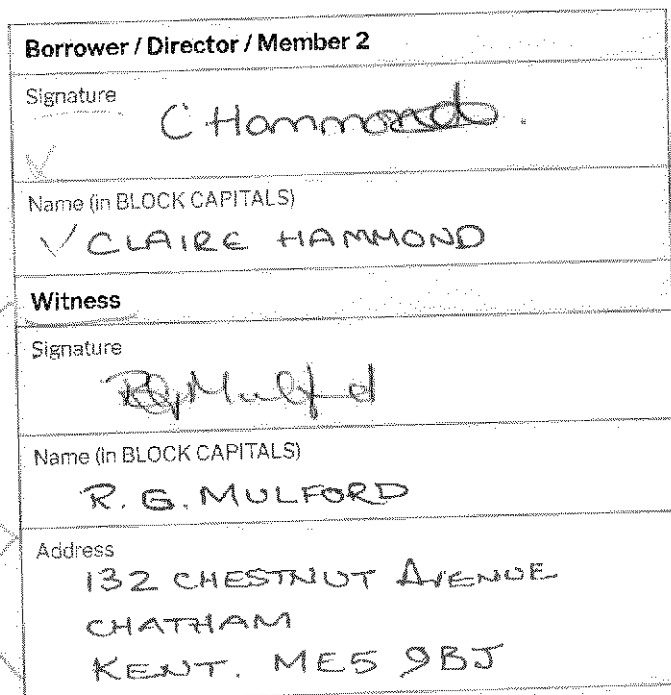 Borrower / Director / Member 2
Signature
C Hammond.
Name (in BLOCK CAPITALS)
CLAIRE HAMMOND
Witness
Signature
RG Mulford
Name (in BLOCK CAPITALS)
R. G. MULFORD
Address
132 CHESTNUT AVENUE
CHATHAM
KENT. ME5 9BJ